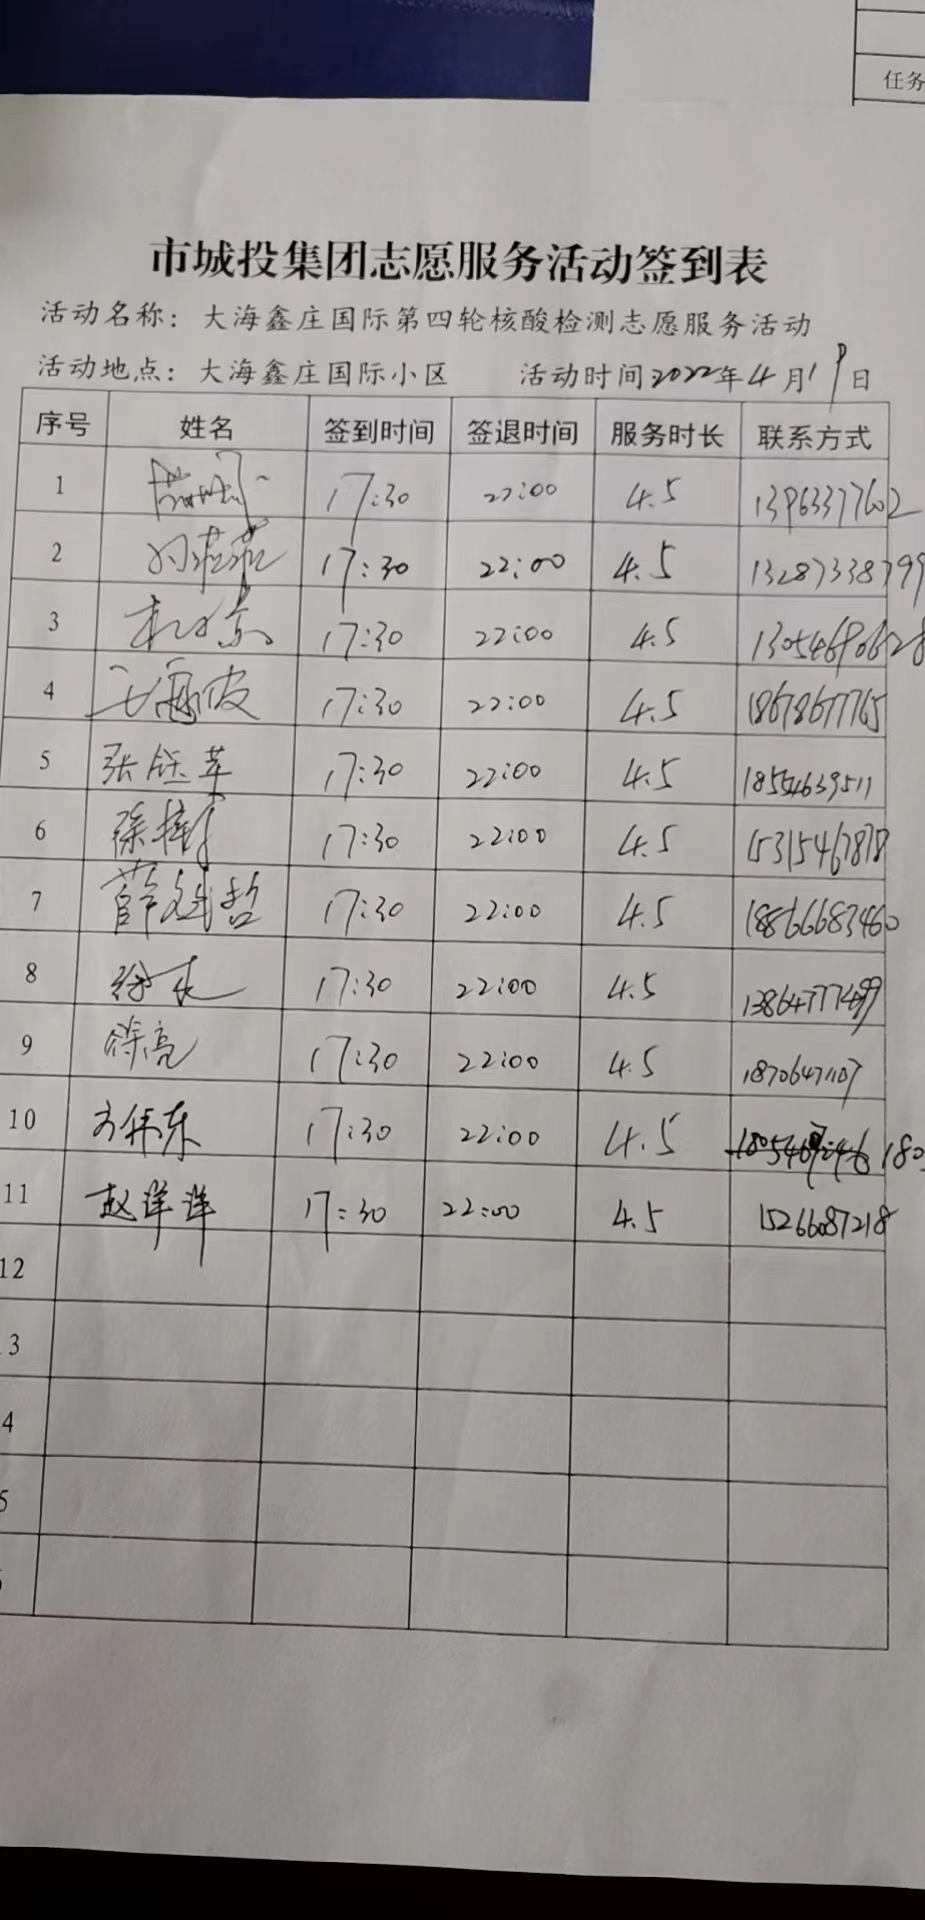 任务
市城投集团志愿服务活动签到表
活动名称：大海鑫庄国际第四轮核酸检测志愿服务活动
活动地点：大海鑫庄国际小区 活动时间2022年4月19日
序号 姓名 签到时间 签退时间 服务时长 联系方式
1 17:30 22:00 4.5 13963377602
2 17:30 22:00 4.5 13287338799
3 17:30 22:00 4.5
4 王海波 17:30 22:00 4.5 18678677765
5 张钰苹 17:30 22:00 4.5 18554639511
6 17:30 22:00 4.5 15315467878
7 薛斌哲 17:30 22:00 4.5 18866683460
8 17:30 22:00 4.5 13864777499
9 徐亮 17:30 22:00 4.5 18706471107
10 方伟东 17:30 22:00 4.5 180
11 赵洋洋 17:30 22:00 4.5 15266087218
12
3
4
5